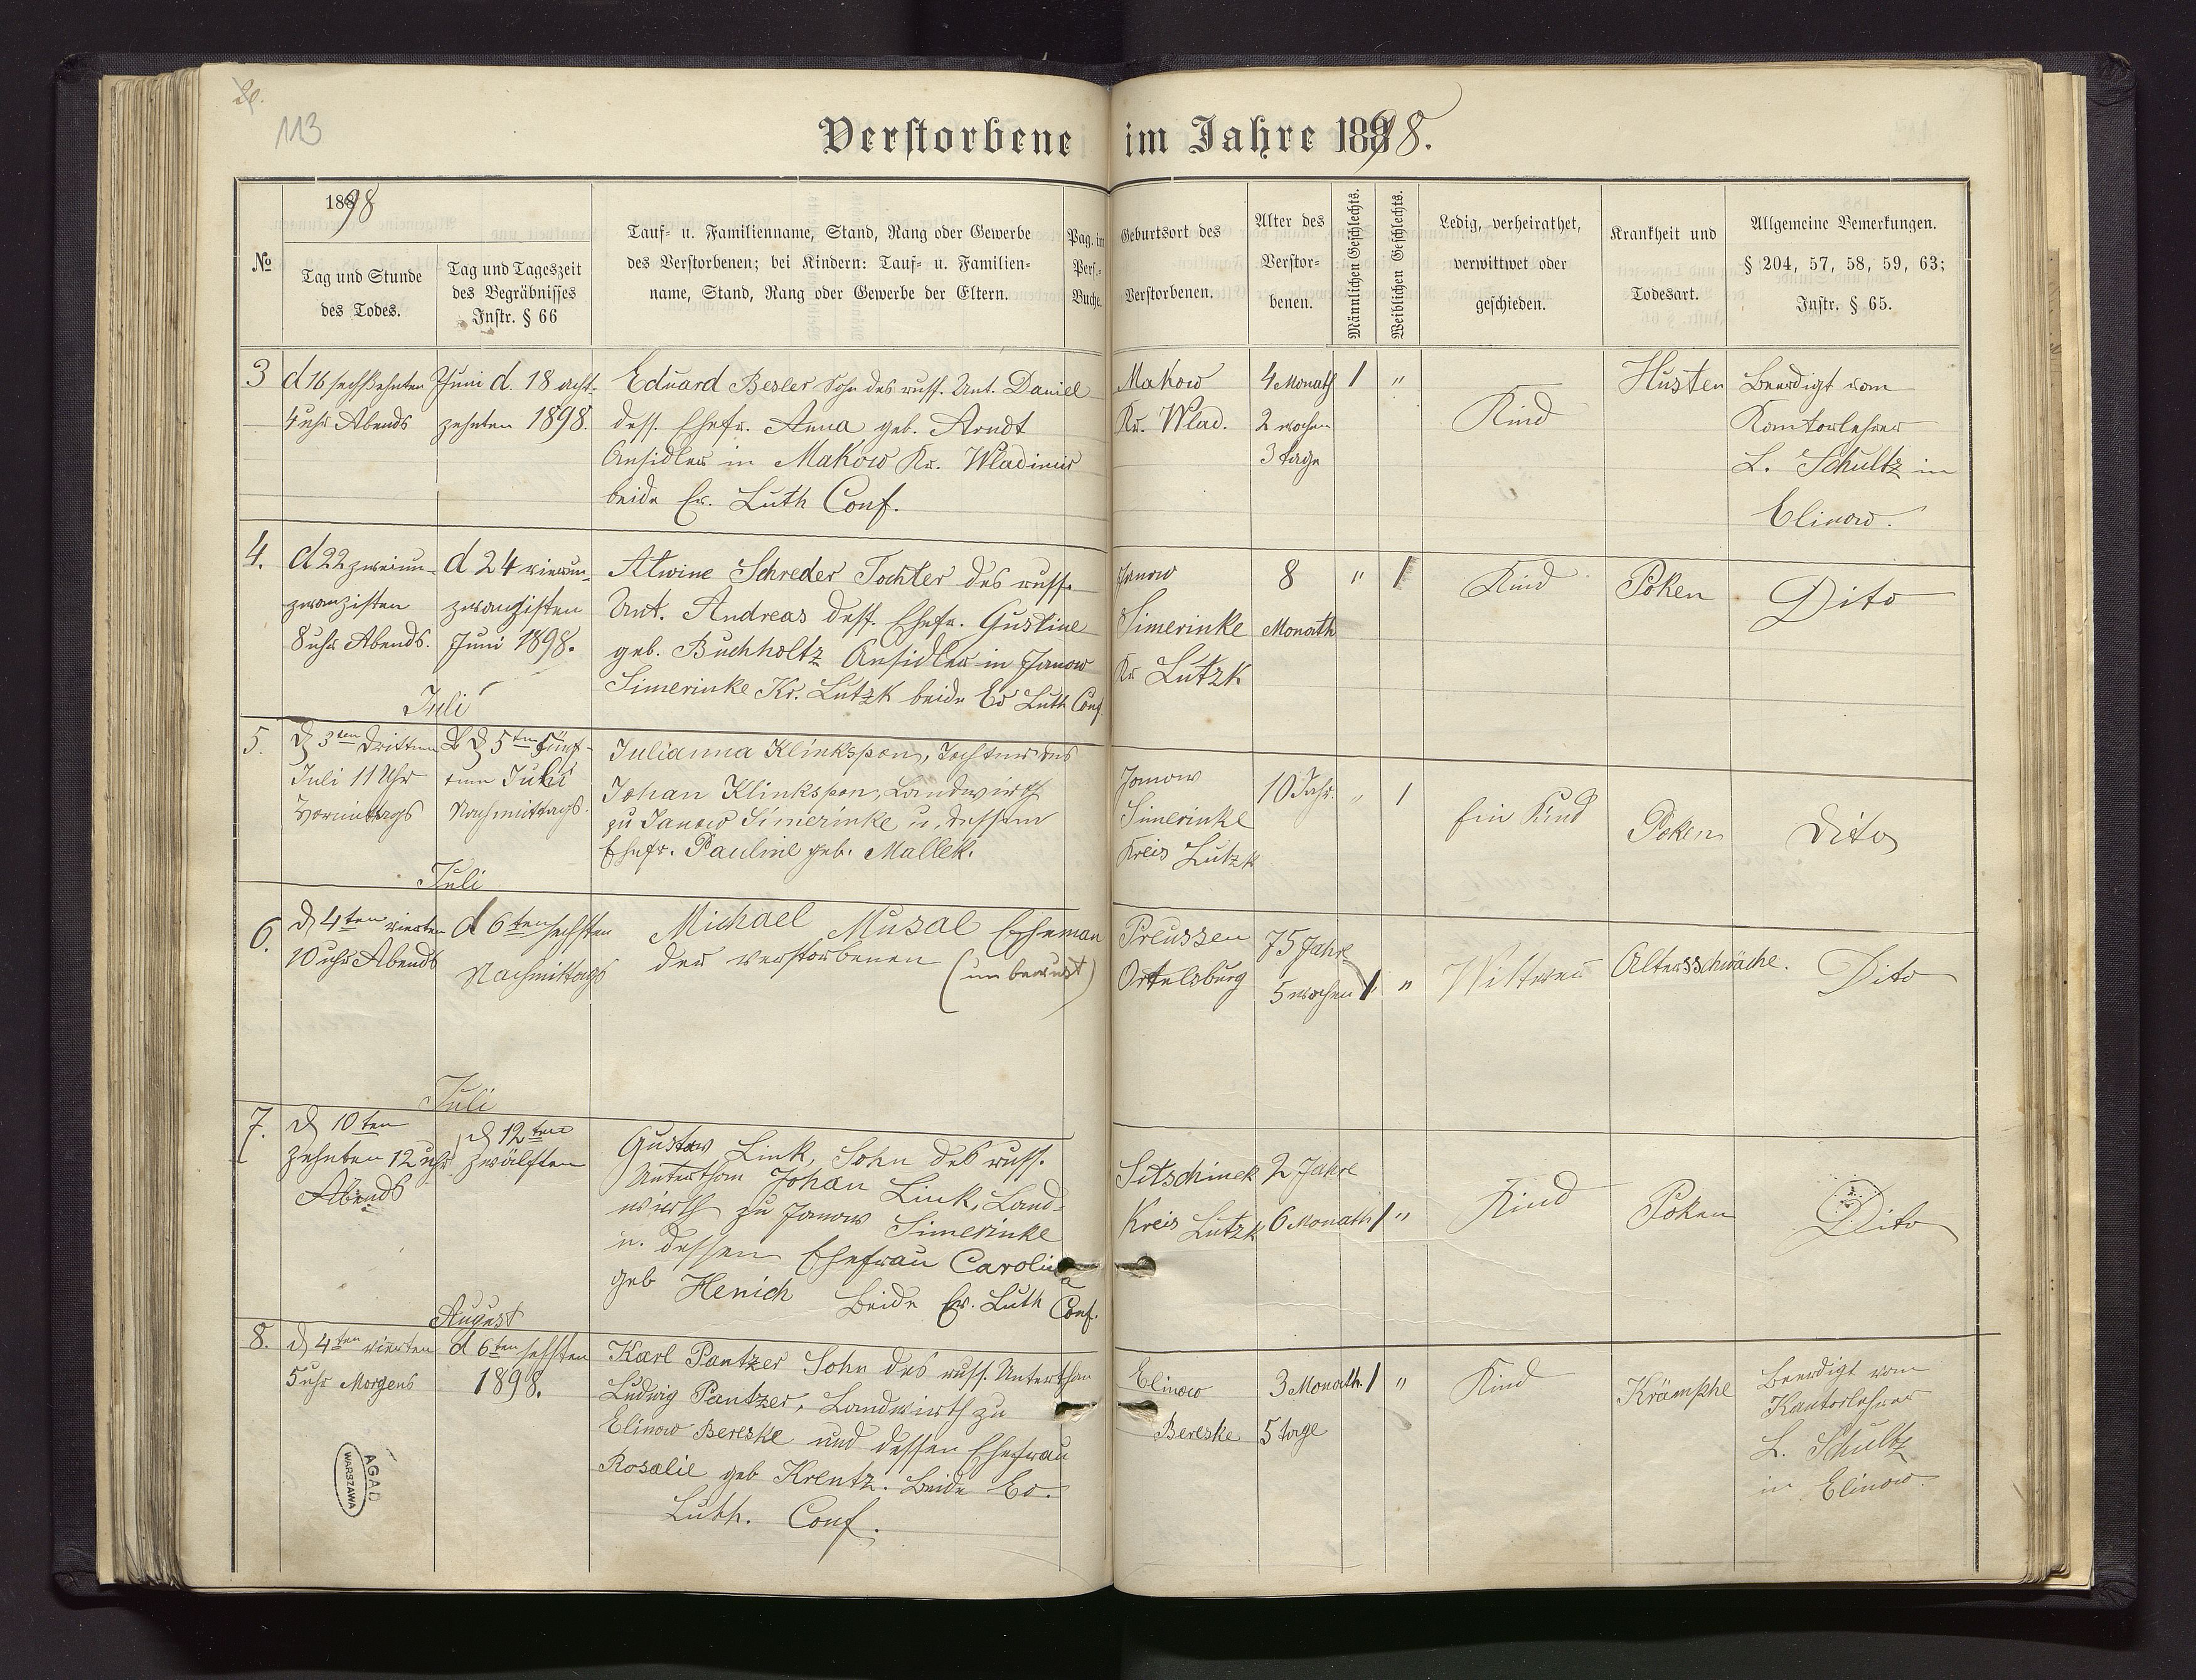 113
Verstorbene im Jahre 1898.
№
1898
Tag und Stunde
des Todes.
Tag und Tageszeit
des Begräbnisses
Instr. § 66
Tauf- u. Familienname, Stand, Rang oder Gewerbe
des Verstorbenen; bei Kindern: Tauf- u. Familien-
name, Stand, Rang oder Gewerbe der Eltern.
Pag. im
Pers.-
Buche.
Geburtsort des
Verstorbenen.
Alter des
Verstor-
benen.
Männlichen Geschlechts.
Weiblichen Geschlechts.
Ledig, verheirathet,
verwittwet oder
geschieden.
Krankheit und
Todesart.
Allgemeine Bemerkungen.
§ 204, 57, 58, 59, 63;
Instr. § 65.
3
d 16 sechszehnten
4 uhr Abends
Juni d. 18 acht-
zehnten 1898.
Eduard Besler Sohn des russ. Unt. Daniel
dess. Ehefr. Anna geb. Arndt
Ansidler in Makow Kr. Wladimir
beide Ev. Luth Conf.
Makow
Kr. Wlad.
4 Monath
2 wochen
3 tage
1
"
Kind
Husten
Beerdigt vom
Kantorlehrer
L. Schultz in
Elinow.
4.
d 22 zweiun-
zwanzisten
8 uhr Abends.
d 24 vierun-
zwanzisten
Juni 1898.
Alwine Schreder Tochter des russ.
Unt. Andreas dess. Ehefr. Gustine
geb. Buchholtz Ansidler in Janow
Simerinke Kr. Lutzk beide Ev Luth Conf.
Janow
Simerinke
Kr Lutzk
8
Monath
"
1
Kind
Poken
Dito
Juli
5.
d 3ten Dritten
Juli 11 Uhr
Vormittags
d 5ten Fünf-
ten Juli
Nachmittags.
Julianna Klinkspon, Tochter des
Johan Klinkspon, Landwirth
zu Janow Simerinke u. dessen
Ehefr. Pauline geb. Mallek.
Janow
Simerinke
Kreis Lutzk
10 Jahr.
"
1
Ein Kind
Poken
Dito
Juli
6.
d 4ten vierten
10 uhr Abends
d 6ten sechsten
Nachmittags
Michael Musal Eheman
der verstorbenen (unbewust)
Preussen
Ortelsburg
75 Jahre
5 wochen
1
"
Wittwer
Altersschwäche.
Dito
Juli
7.
d 10ten
zehnten 12 uhr
Abends
d 12ten
zwälften
Gustaw Link, Sohn des russ.
Unterthan Johan Link, Land-
wirth zu Janow Simerinke
u. dessen Ehefrau Carolina
geb Henich beide Ev. Luth Conf.
Sitschinek
Kreis Lutzk
2 Jahre
6 Monath
1
"
Kind
Poken
Dito
August
8.
d 4ten vierten
5 uhr Morgens
d 6ten sechsten
1898.
Karl Pantzer Sohn des russ. Unterthan
Ludwig Pantzer, Landwirth zu
Elinow Bereske und dessen Ehefrau
Rosalie geb Krentz. Beide Ev.
Luth. Conf.
Elinow
Bereske
3 Monath
5 tage
1
"
Kind
Krämphe
Beerdigt vom
Kantorlehrer
L. Schultz
in Elinow.
AGAD
WARSZAWA